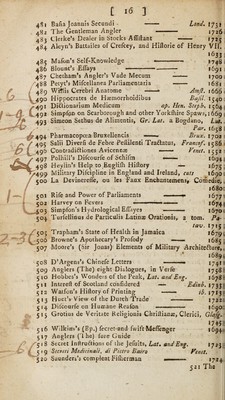 [ 16 ]
481 Basia Joannis Secundi - Land. 1731
482 The Gentleman Angler 1726
483 Clerke's Dealer in Stocks Assistant 1725
484 Aleyn's Battailes of Cressey, and Historie of Henry VII.
1633
485 Mason's Self-Knowledge 1748
486 Blount's Essays 1692
487 Chetham's Angler's Vade Mecum 1700
488 Petyt's Miscellanea Parliamentaria 1681
489 Willis Cerebri Anatome Amst. 1666
490 Hippocrates de Hæmorrhoidibus Basil. 1540
491 Dictionarium Medicum ap. Hen. Steph. 1564
492 Simpson on Scarborough and other Yorkshire Spaws, 1669
493 Simeon Sethus de Alimentis, Gr. Lat. a Bogdano,
Par. 1658
494 Pharmacopœa Bruxellensis Brux. 1702
495 Salii Diversi de Febre Pestilenti Tractatus, Francof. 1586
496 Contradictiones Avicennæ Venet.
497 Polhill's Discourse of Schism
498 Heylin's Help to English History
500 Military Discipline in England and Ireland, cuts 1690
500 La Devineresse, ou les Faux Enchantemens, Comedie,
1680
501 Rise and Power of Parliaments 1677
502 Harvey on Fevers
503 Simpson's Hydrological Essayes 1670
504 Turselinus de Particulis Latinæ Orationis, 2 tom.
1715
505 Trapham's State of Health in Jamaica 1679
506 Browne's Apothecary's Prosody 1685
507 Moore's (Sir Jonas) Elements of Military Architecture,
1689
508 D'Argens's Chinese Letters 1741
509 Anglers (The) eight Dialogues, in Verse
510 Hobbes's Wonders of the Peek, Lat. and Eng.
511 Interest of Scotland considered Edinb. 1733
512 Watson's History of Printing ib. 1713
513 Huet's View of the Dutch Trade 1722
514 Discourse on Humane Reason 1690
515 Grotius de Veritate Religionis Christianæ, Clerici,
516 Wilkin's (Bp.) secret and swift Messenger 1694
517 Anglers (The) sure Guide
518 Secret Instructions of the Jesuits, Lat. and Eng. 1723
519 Secreti Medicinali, di Pietro Bairo Venet.
520 Saunders's compleat Fisherman 1724
521 The